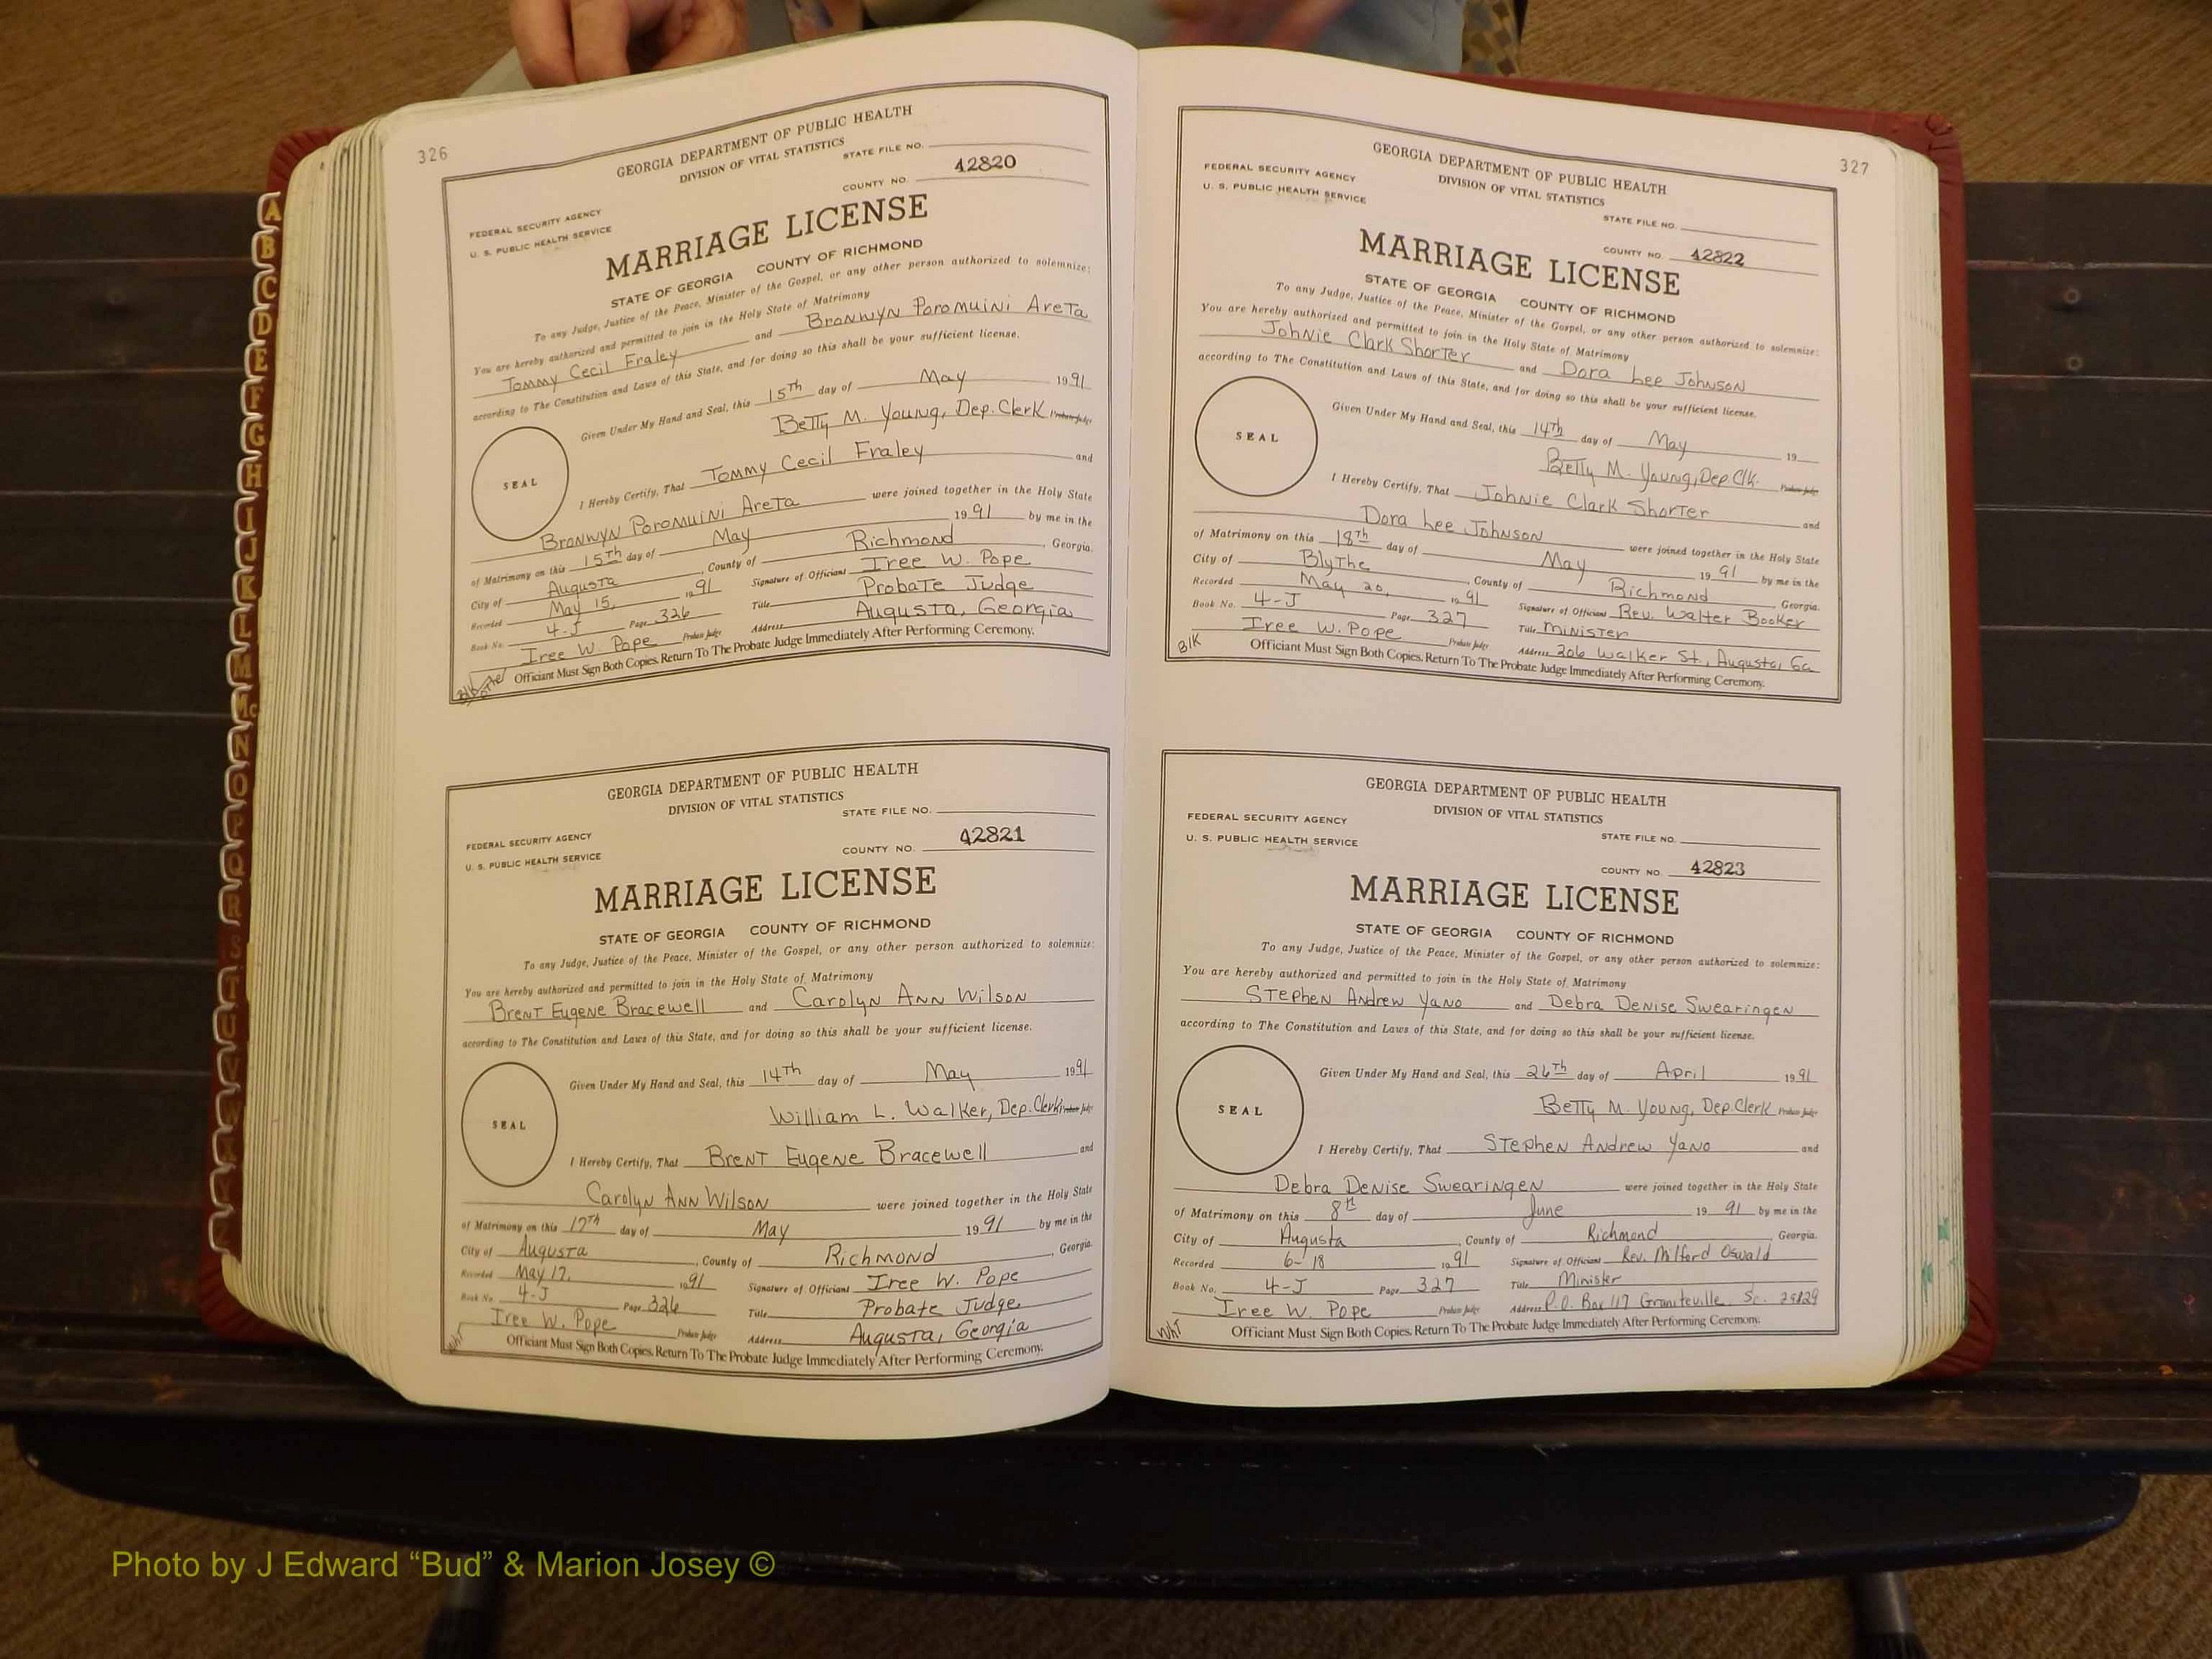 326
GEORGIA DEPARTMENT OF PUBLIC HEALTH
DIVISION OF VITAL STATISTICS
STATE FILE NO.
COUNTY NO. 42820
FEDERAL SECURITY AGENCY
U. S. PUBLIC HEALTH SERVICE
MARRIAGE LICENSE
STATE OF GEORGIA COUNTY OF RICHMOND
To any Judge, Justice of the Peace, Minister of the Gospel, or any other person authorized to solemnize:
You are hereby authorized and permitted to join in the Holy State of Matrimony
Tommy Cecil Fraley and Bronwyn Poromuini Areta
according to The Constitution and Laws of this State, and for doing so this shall be your sufficient license.
Given Under My Hand and Seal, this 15th day of May 1991
Betty M. Young, Dep. Clerk Probate Judge
SEAL
I Hereby Certify, That Tommy Cecil Fraley and
Bronwyn Poromuini Areta were joined together in the Holy State
of Matrimony on this 15th day of May 1991 by me in the
City of Augusta, County of Richmond, Georgia.
Recorded May 15, 1991 Signature of Officiant Iree W. Pope
Book No. 4-J Page 326 Title Probate Judge
Iree W. Pope Probate Judge Address Augusta, Georgia
Officiant Must Sign Both Copies. Return To The Probate Judge Immediately After Performing Ceremony.
GEORGIA DEPARTMENT OF PUBLIC HEALTH
DIVISION OF VITAL STATISTICS
STATE FILE NO.
FEDERAL SECURITY AGENCY
U. S. PUBLIC HEALTH SERVICE
COUNTY NO. 42821
MARRIAGE LICENSE
STATE OF GEORGIA COUNTY OF RICHMOND
To any Judge, Justice of the Peace, Minister of the Gospel, or any other person authorized to solemnize:
You are hereby authorized and permitted to join in the Holy State of Matrimony
Brent Eugene Bracewell and Carolyn Ann Wilson
according to The Constitution and Laws of this State, and for doing so this shall be your sufficient license.
Given Under My Hand and Seal, this 14th day of May 1991
William L. Walker, Dep. Clerk Probate Judge
SEAL
I Hereby Certify, That Brent Eugene Bracewell and
Carolyn Ann Wilson were joined together in the Holy State
of Matrimony on this 17th day of May 1991 by me in the
City of Augusta, County of Richmond, Georgia.
Recorded May 17, 1991 Signature of Officiant Iree W. Pope
Book No. 4-J Page 326 Title Probate Judge
Iree W. Pope Probate Judge Address Augusta, Georgia
Wht Officiant Must Sign Both Copies. Return To The Probate Judge Immediately After Performing Ceremony.
327
GEORGIA DEPARTMENT OF PUBLIC HEALTH
DIVISION OF VITAL STATISTICS
FEDERAL SECURITY AGENCY
U. S. PUBLIC HEALTH SERVICE
STATE FILE NO.
COUNTY NO. 42822
MARRIAGE LICENSE
STATE OF GEORGIA COUNTY OF RICHMOND
To any Judge, Justice of the Peace, Minister of the Gospel, or any other person authorized to solemnize:
You are hereby authorized and permitted to join in the Holy State of Matrimony
Johnie Clark Shorter and Dora Lee Johnson
according to The Constitution and Laws of this State, and for doing so this shall be your sufficient license.
Given Under My Hand and Seal, this 14th day of May 19
Betty M. Young, Dep Clk. Probate Judge
SEAL
I Hereby Certify, That Johnie Clark Shorter and
Dora Lee Johnson were joined together in the Holy State
of Matrimony on this 18th day of May 1991 by me in the
City of Blythe, County of Richmond, Georgia.
Recorded May 20, 1991 Signature of Officiant Rev. Walter Booker
Book No. 4-J Page 327 Title Minister
Iree W. Pope Probate Judge Address 206 Walker St., Augusta, Ga
Blk Officiant Must Sign Both Copies. Return To The Probate Judge Immediately After Performing Ceremony.
GEORGIA DEPARTMENT OF PUBLIC HEALTH
DIVISION OF VITAL STATISTICS
FEDERAL SECURITY AGENCY
U. S. PUBLIC HEALTH SERVICE
STATE FILE NO.
COUNTY NO. 42823
MARRIAGE LICENSE
STATE OF GEORGIA COUNTY OF RICHMOND
To any Judge, Justice of the Peace, Minister of the Gospel, or any other person authorized to solemnize:
You are hereby authorized and permitted to join in the Holy State of Matrimony
Stephen Andrew Yano and Debra Denise Swearingen
according to The Constitution and Laws of this State, and for doing so this shall be your sufficient license.
Given Under My Hand and Seal, this 26th day of April 1991
Betty M. Young, Dep. Clerk Probate Judge
SEAL
I Hereby Certify, That Stephen Andrew Yano and
Debra Denise Swearingen were joined together in the Holy State
of Matrimony on this 8th day of June 1991 by me in the
City of Augusta, County of Richmond Georgia.
Recorded 6-18 1991 Signature of Officiant Rev. Milford Oswald
Book No. 4-J Page 327 Title Minister
Iree W. Pope Probate Judge Address P.O. Box 117 Graniteville, Sc. 29829
Wht Officiant Must Sign Both Copies. Return To The Probate Judge Immediately After Performing Ceremony.
A
B
C
D
E
F
G
H
I
J
K
L
M
Mc
N
O
P
Q
R
S
T
U
V
W
Photo by J Edward “Bud” & Marion Josey ©